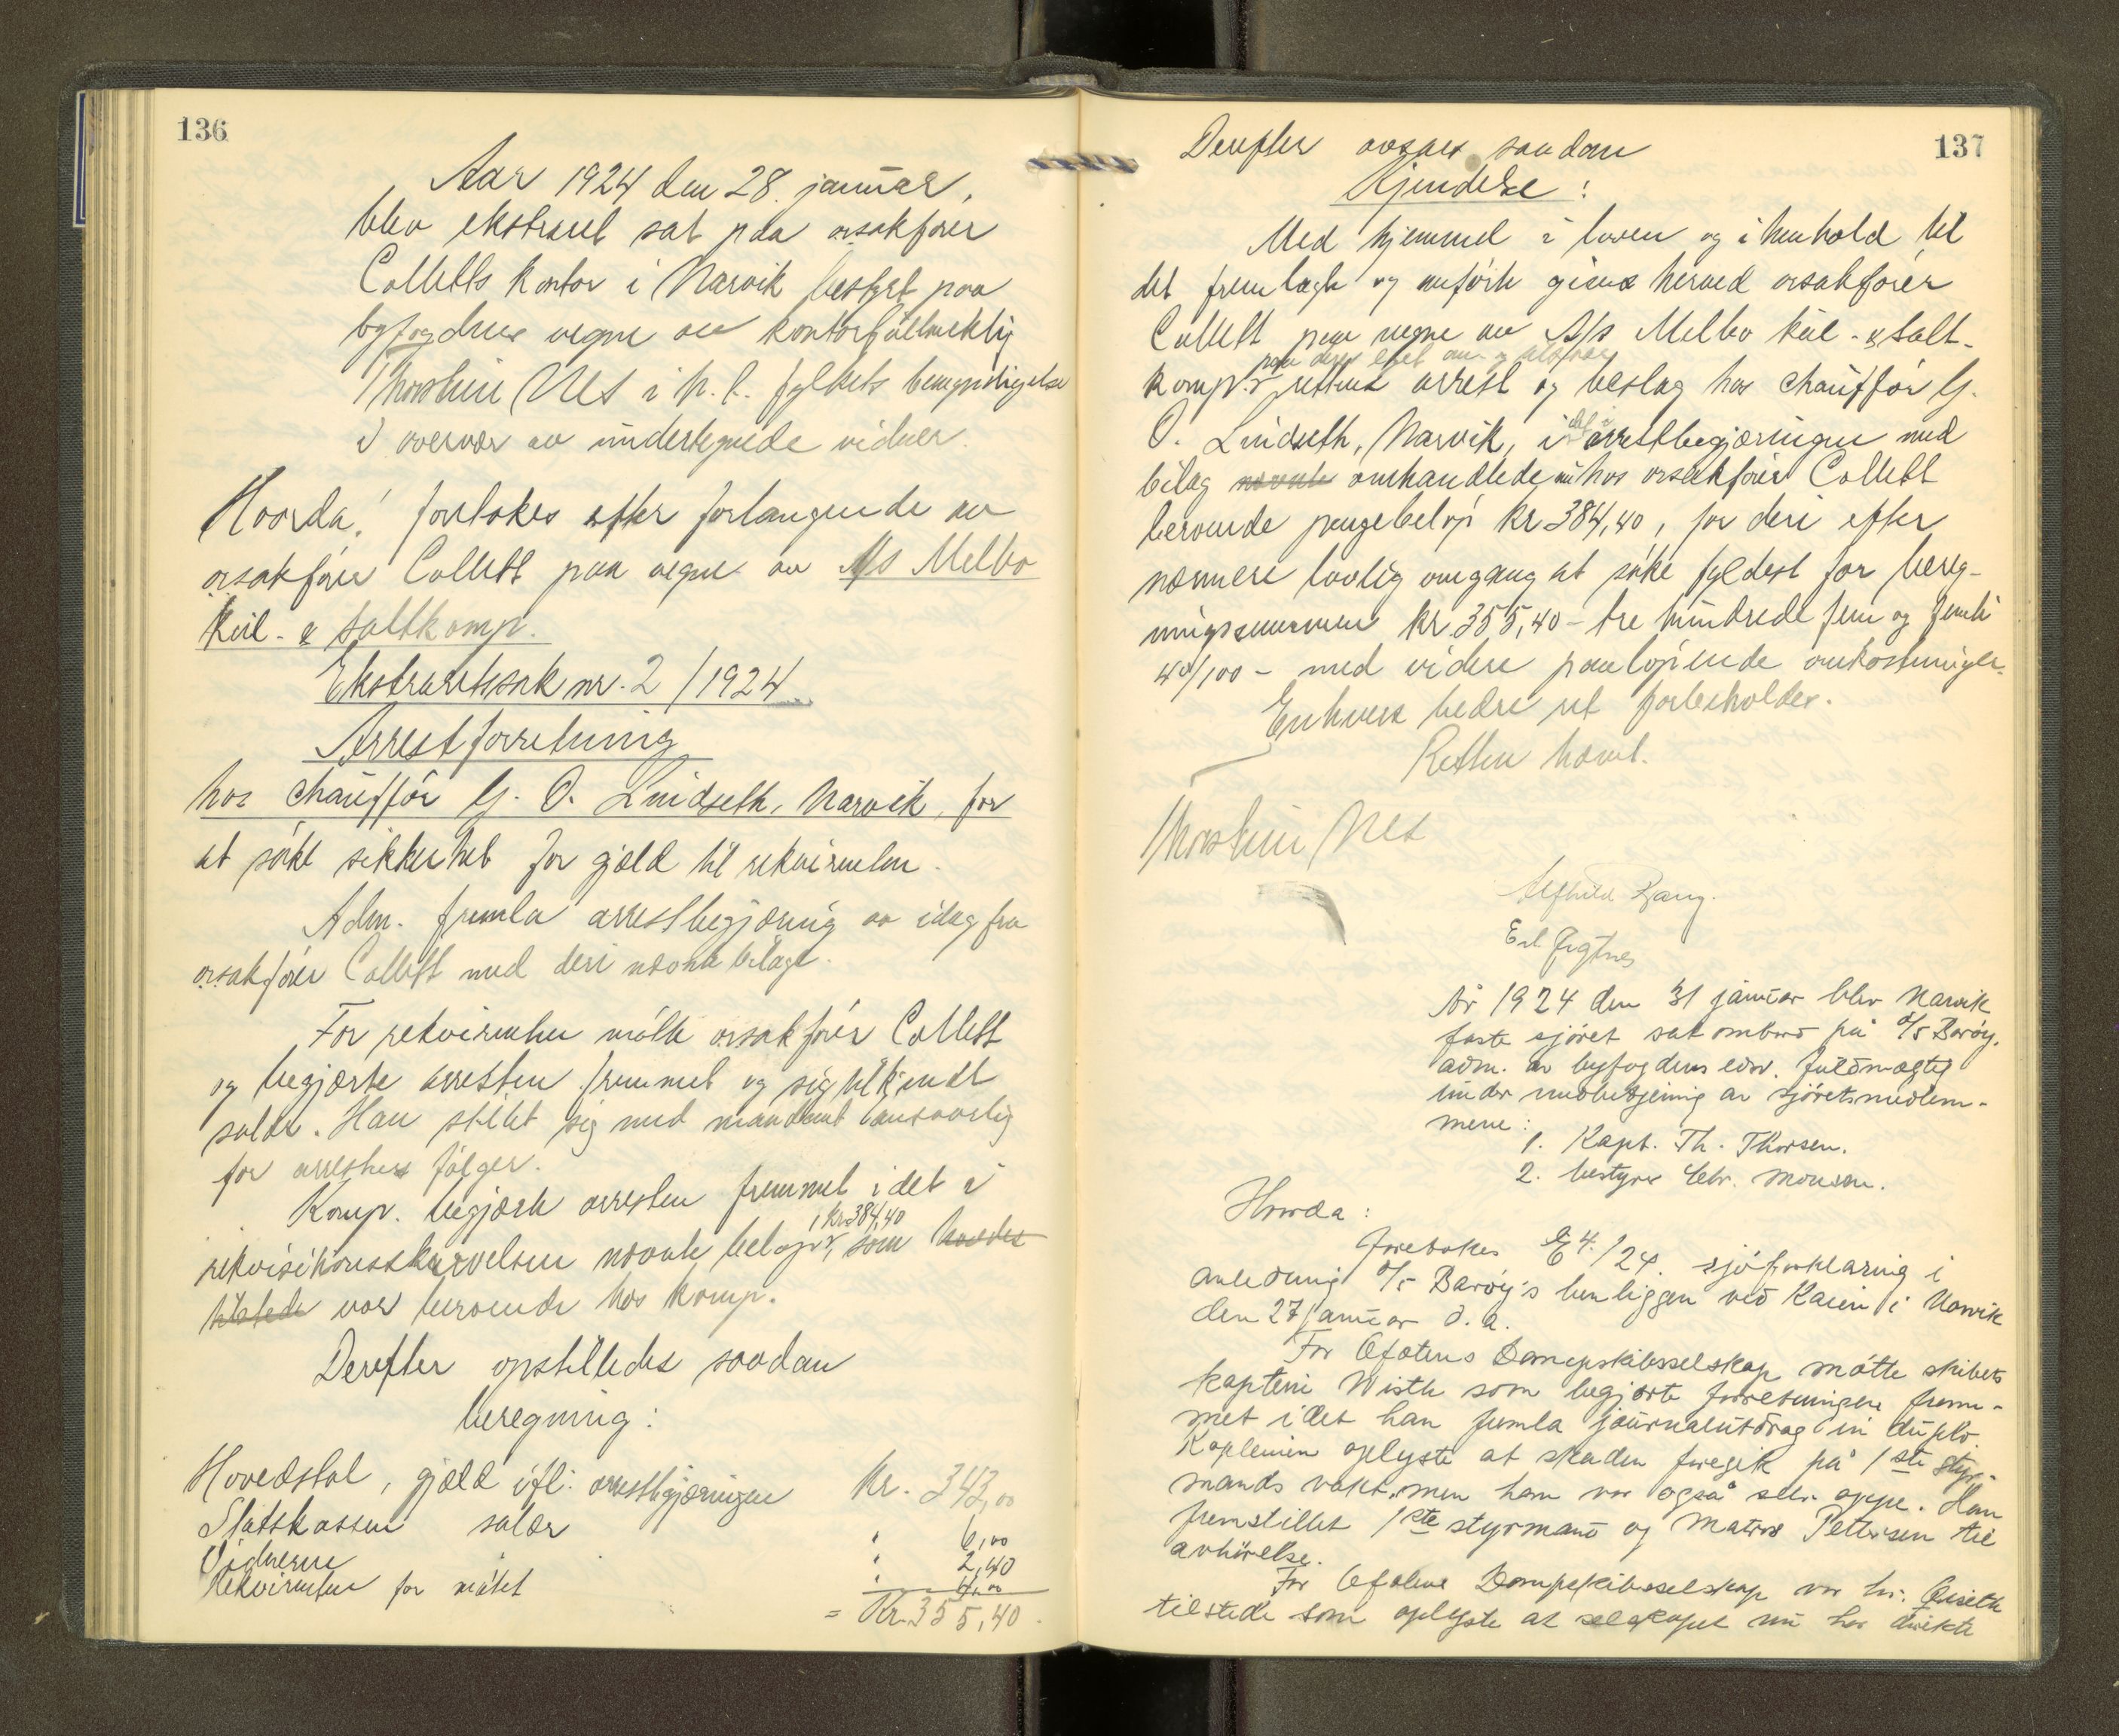 136
Aar 1924 den 28. januar,
blev ekstraret sat paa orsakfører
Colletts kontor i Narvik bestyrt paa
byfogdens vegne av kontorfuldmektig
Thorstein Nes i h. t. fylkets bemyndigelse
i overvær av undertegnede vidner.
Hvorda: foretokes efter forlangende av
orsakfører Collett paa vegne av A/s Melbo
Kul- & Saltkomp.
Ekstraretssak nr. 2 / 1924
Arrestforretning
hos chauffør G. O. Lindseth, Narvik, for
at søke sikkerhet for gjæld til rekvirenten.
Adm. fremla arrestbegjæring av idag fra
orsakfører Collett med deri nævnte bilage.
For rekvirenten møtte orsakfører Collett
og begjærte arresten fremmet og sig tilkjendt
salær. Han stillet sig med mandant ansvarlig
for arrestens følger.
Komp. begjærte arresten fremmet idet i
, kr. 384,40
rekvisitionsskrivelsen nævnte beløp, som havdes
tilstede var beroende hos komp.
Derefter opstilledes saadan
beregning:
Hovedstol, gjæld ifl. arrestbegjæringen Kr. 343,00
Statskassen salær " 6,00
Vidnerne " 2,40
Rekvirenten for møtet " 4,00
= Kr. 355,40.
137
Derefter avsaes saadan
Kjendelse:
Med hjemmel i loven og i henhold til
det fremlagte og anførte gives herved orsakfører
Collett paa vegne av A/s Melbo kul- & salt-
paa deres eget an- og tilsvar
komp. rettens arrest og beslag hos chauffør G.
O. Lindseth, Narvik, i det i arrestbegjæringen med
bilag nævnte omhandlede nu hos orsakfører Collett
beroende pengebeløp kr 384,40, for deri efter
nærmere lovlig omgang at søke fyldest for bereg-
ningssummen kr 355,40 – tre hundrede fem og femti
40/100 – med videre paaløpende omkostninger.
Enhvers bedre ret forbeholdes.
Retten hævet.
Thorstein Nes
Alfhild Bang.
År 1924 den 31 januar blev Narvik
faste sjøret sat ombord på d/s Barøy.
adm. av byfogdens edsv. fuldmægtig
under medbetjening av sjøretsmedlem-
mene:
1. Kapt. Th. Thorsen.
2. bestyrer Edv. Monsen.
Hvorda:
foretokes E 4./24. sjøforklaring i
anledning d/s Barøy's henliggen ved Kaien i Narvik
den 27 januar d. a.
For Ofotens Dampskibsselskap møtte skibets
kaptein Wisth som begjærte forretningen frem-
met idet han fremla journalutdrag in duplo.
Kapteinen oplyste at skaden foregik på 1ste styr-
mands vakt, men han var også selv oppe. Han
fremstillet 1ste styrmand og Matros Pettersen til
avhørelse.
For Ofotens Dampskibsselskap var hr: Quiseth
tilstede som oplyste at selskapet nu har direkte